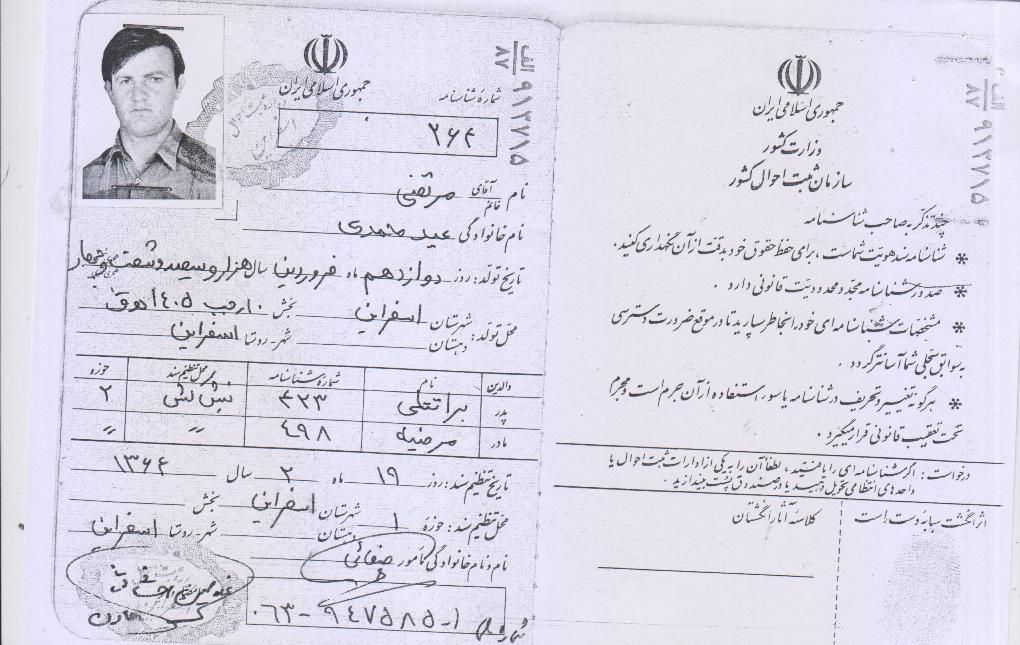 جمهوری اسلامی ایران
شمارهٔ شناسنامه
۳۶۴
الف
۸۷
۹۱۳۷۱۵
نام آقای خانم مرتضی
نام خانوادگی عیدمحمدی
تاریخ تولد: روز دوازدهم ماه فروردین سال هزار و سیصد و شصت و چهار
محل تولد: شهرستان اسفراین بخش ۱۰ رجب ۱۴۰۵ ه‍ ق
دهستان شهر-روستا اسفراین
والدین نام شمارهٔ شناسنامه محل تنظیم سند حوزه
پدر براتعلی ۴۲۳ ۲
مادر مرضیه ۴۹۸ " "
تاریخ تنظیم سند: روز ۱۹ ماه ۲ سال ۱۳۶۴
محل تنظیم سند: حوزه ۱ شهرستان اسفراین بخش
دهستان شهر-روستا اسفراین
نام و نام خانوادگی مامور
۰۶۳-۹۴۷۵۸۵-۱
الف
۸۷
۹۱۳۷۱۵
جمهوری اسلامی ایران
وزارت کشور
سازمان ثبت احوال کشور
چند تذکر به صاحب شناسنامه
* شناسنامه سند هویت شماست، برای حفظ حقوق خود بدقت از آن نگهداری کنید.
* صدور شناسنامه مجدد محدودیت قانونی دارد.
* مشخصات شناسنامه ای خود را بخاطر بسپارید تا در موقع ضرورت دسترسی
به سوابق سجلی شما آسانتر گردد.
* هرگونه تغییر و تحریف در شناسنامه یا سوء استفاده از آن جرم است و مجرم
تحت تعقیب قانونی قرار میگیرد.
درخواست: اگر شناسنامه ای را یافتید، لطفاً آن را به یکی از ادارات ثبت احوال یا
واحدهای انتظامی تحویل دهید یا در صندوق پست بیندازید.
اثر انگشت سبابه دست است
کلاسه آثار انگشتان